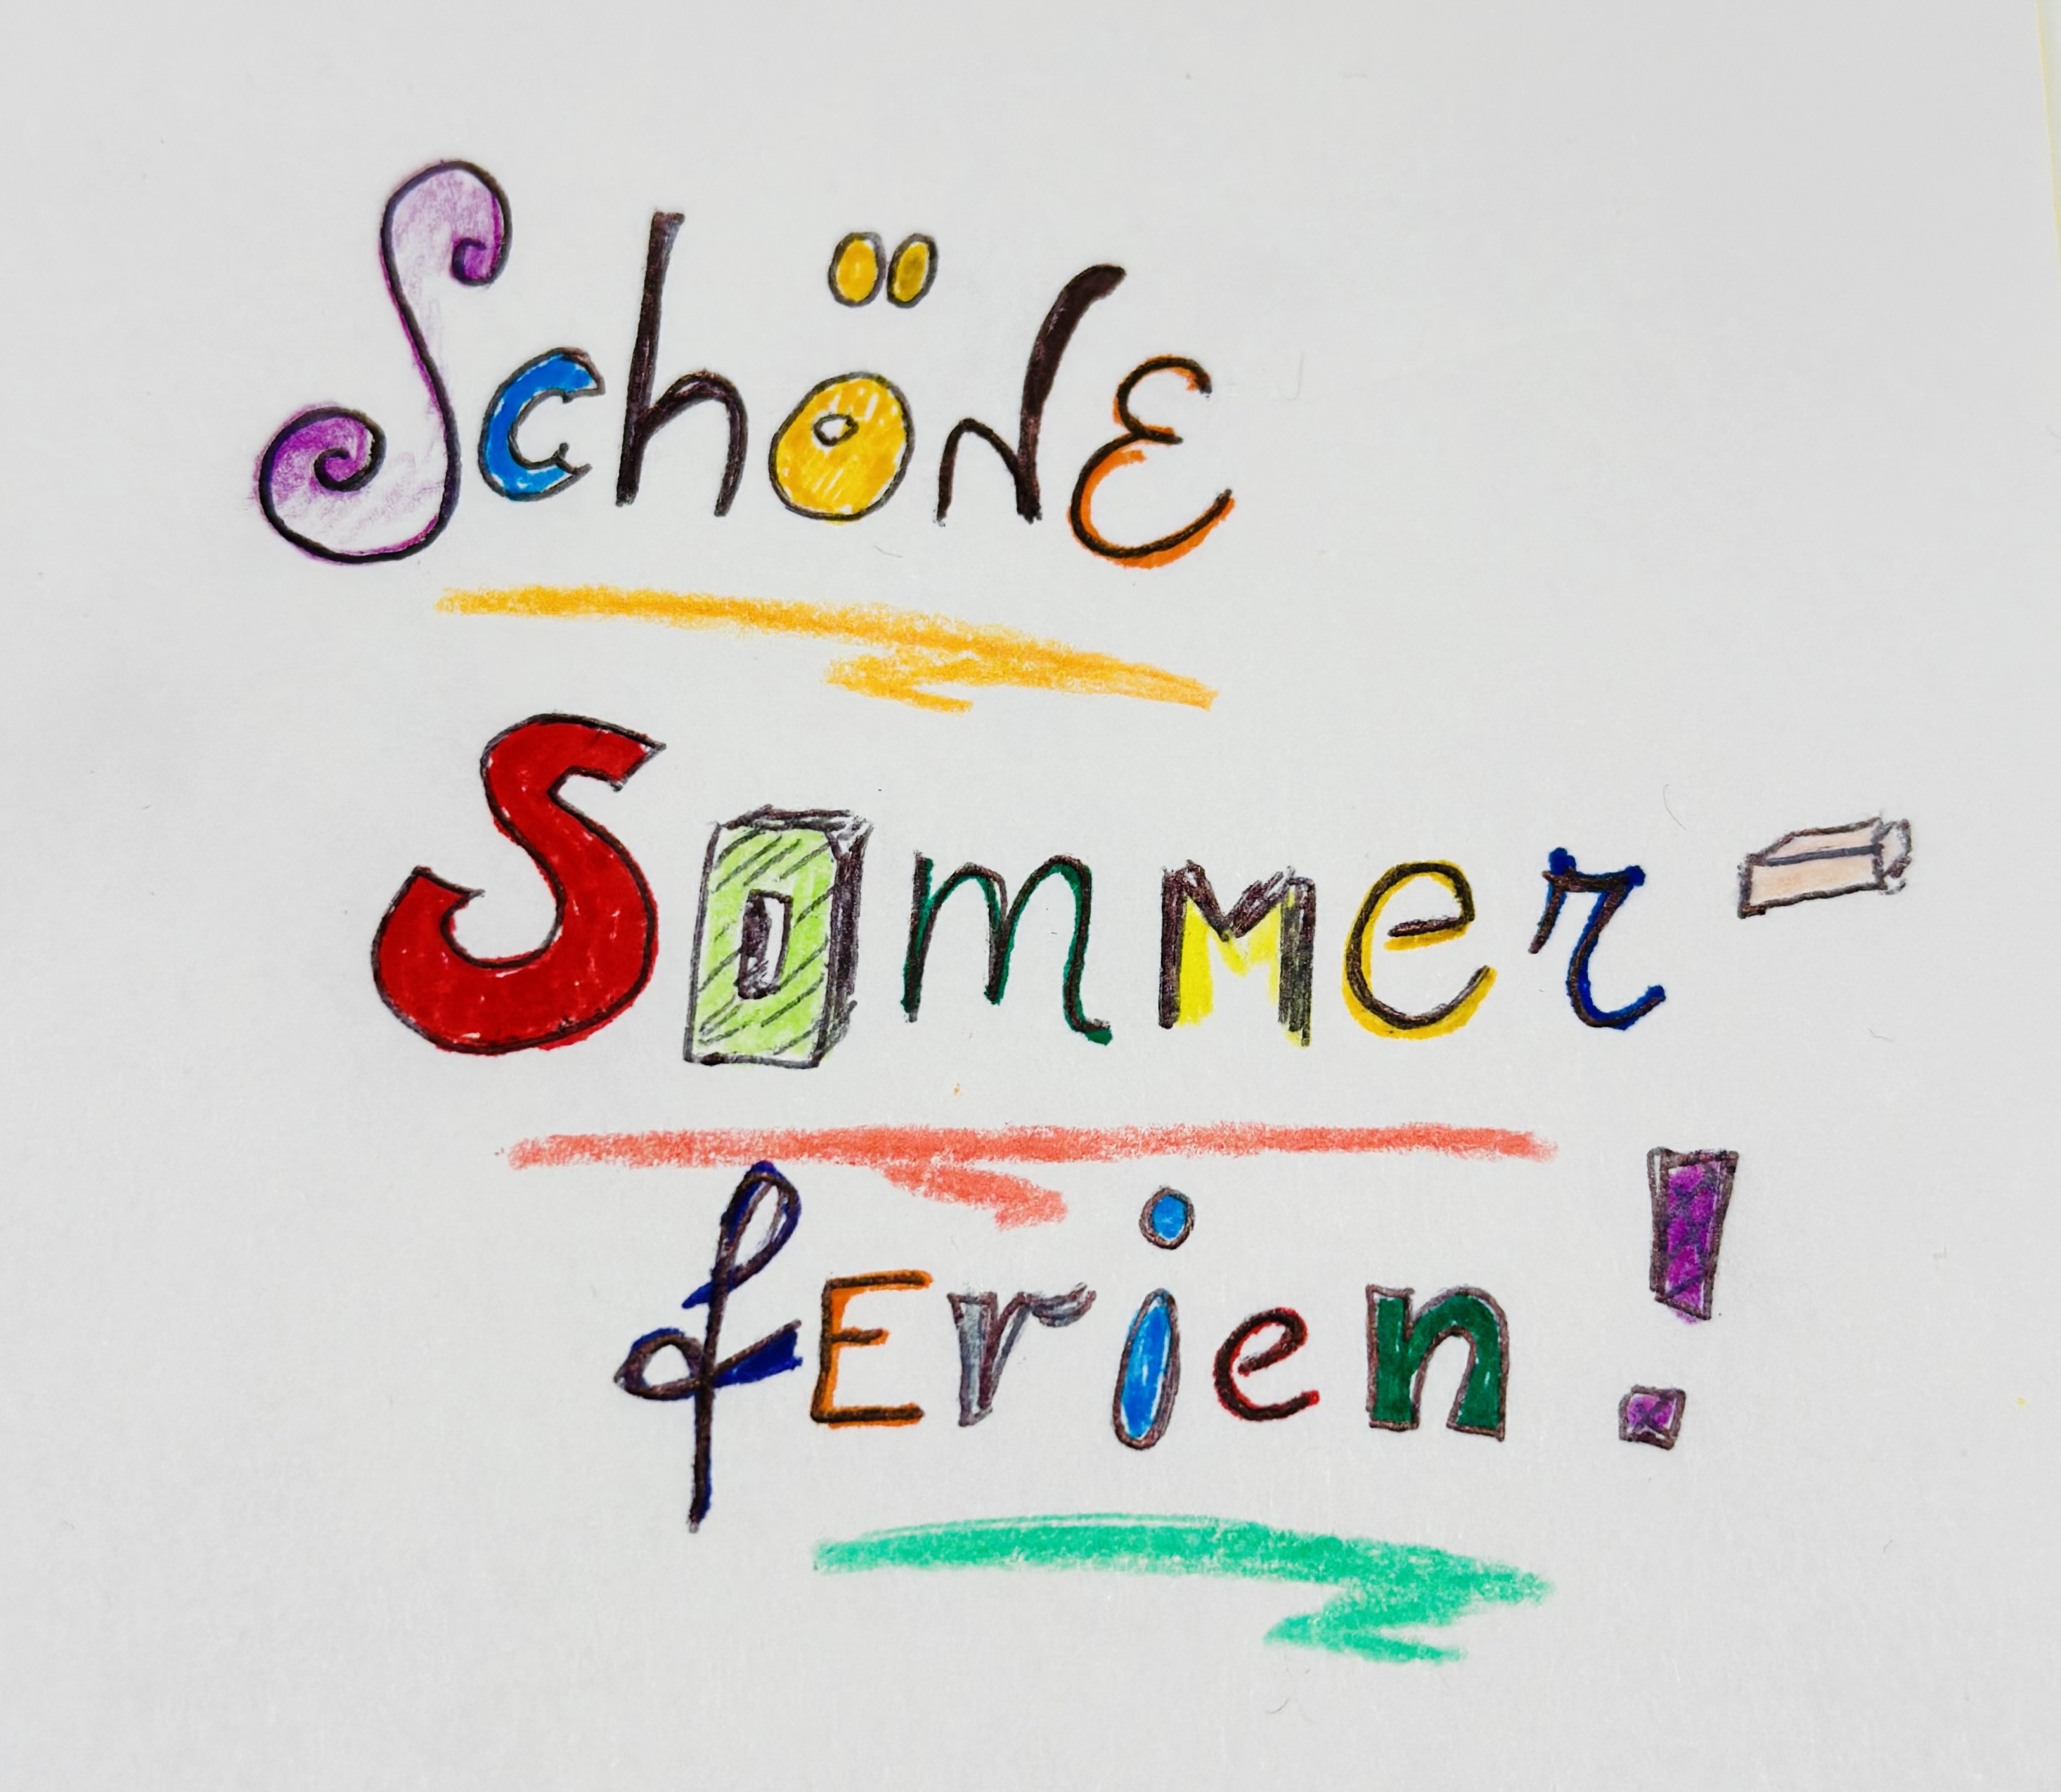 SchöNE
Sommer-
fErien!